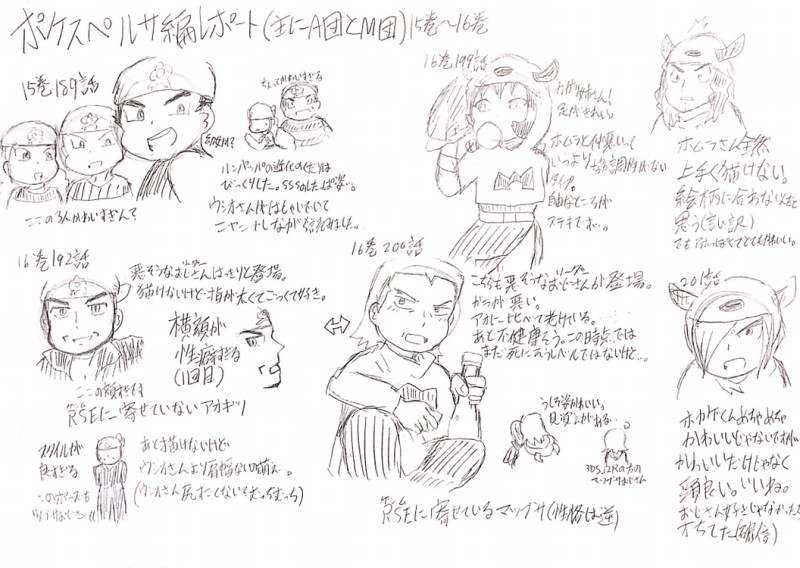 ポケスペルサ編レポート(主にA団とM団)15巻〜16巻
15巻189話
ここの3人かわいすぎんで
ちょっとかわいすぎる
ルンパッパの進化のくだりは
びっくりした。SSSのしたっぱ姿…。
ウシオさんがはしゃいでいて
ニヤニヤしながら読みました。
16巻199話
カガリ姉さん!
足がきれい。
ホムラと仲悪いって
いうより
協調性がない
タイプ。
自由なところが
ステキです。
ホムラさん全然
上手く描けない。
絵柄に合わないんだと
思う(言い訳)
16巻192話
悪そうなおじさん(リーダー)はっきりと登場。
描けないけど指が太くてごつくて好き。
横顔が
性癖すぎる
(1回目)
ここの顔好きです
RSE(ゲーム)に寄せていないアオギリ
スタイルが
良すぎる
このポーズも
あと描けないけど
ウシオさんより肩幅ないの萌え…。
(ウシオさん尻すごくないですか むっちむち)
16巻200話
こちらも悪そうなおじさん(リーダー)が登場。
ガラが悪い。
アオに比べて老けている。
あと不健康そう。この時点では
まだ死にそうレベルではないけど…。
うしろ姿かわいい。
見覚えがある…
3DSΩRの方の
マツブサおじさん
RSE(ゲーム)に寄せているマツブサ(性格は逆)
201話
ホカゲくんめちゃめちゃ
かわいいじゃないですか。
かわいいだけじゃなく
頭良い。いいね。
おじさん好きじゃなかったら
オちてた(確信)